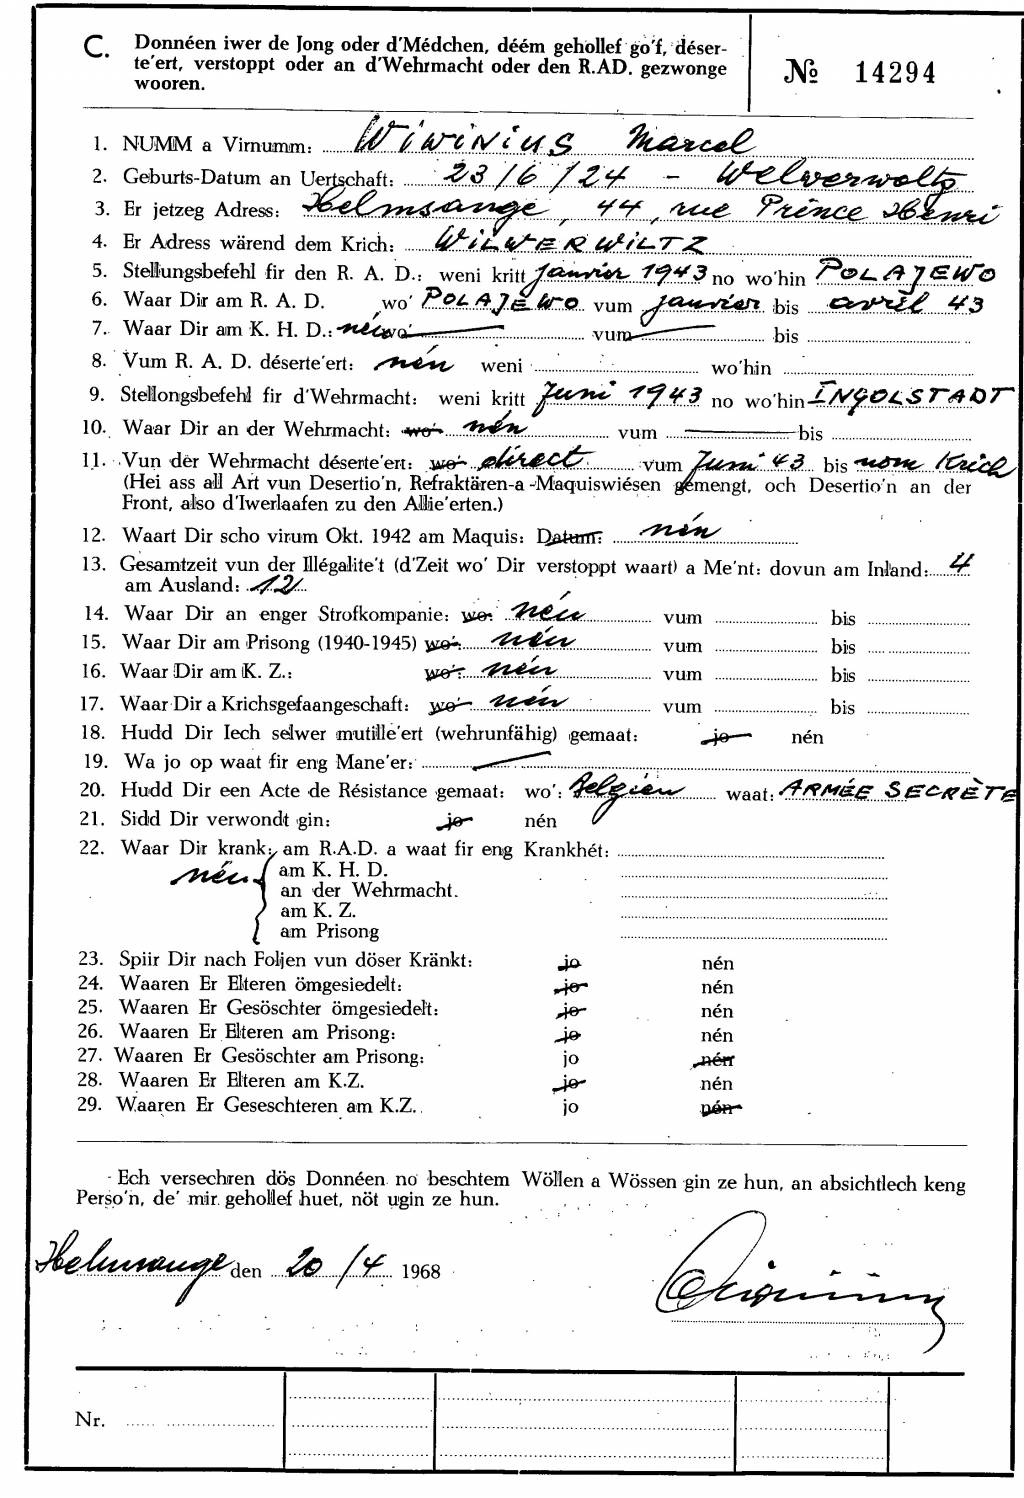 C. Donnéen iwer de Jong oder d'Médchen, déém gehollef go'f, déser-
te'ert, verstoppt oder an d'Wehrmacht oder den R.AD. gezwonge
wooren.
№ 14294
1. NUMM a Virnumm: WIWINIUS Marcel
2. Geburts-Datum an Uertschaft: 23/6/24 - Welverwoltz
3. Er jetzeg Adress: Helmsange, 44, rue Prince Henri
4. Er Adress wärend dem Krich: WILWERWILTZ
5. Stellungsbefehl fir den R. A. D.: weni kritt janvier 1943 no wo'hin POLAJEWO
6. Waar Dir am R. A. D. wo' POLAJEWO vum janvier bis avril 43
7. Waar Dir am K. H. D.: néi wo' vum bis
8. Vum R. A. D. déserte'ert: nén weni wo'hin
9. Stellongsbefehl fir d'Wehrmacht: weni kritt Juni 1943 no wo'hin INGOLSTADT
10. Waar Dir an der Wehrmacht: wo' nén vum bis
11. Vun der Wehrmacht déserte'ert: wo' direct vum Juni 43 bis nom Krich
(Hei ass all Art vun Desertio'n, Refraktären-a -Maquiswiésen gemengt, och Desertio'n an der
Front, also d'Iwerlaafen zu den Allie'erten.)
12. Waart Dir scho virum Okt. 1942 am Maquis: Datum: nén
13. Gesamtzeit vun der Illégalite't (d'Zeit wo' Dir verstoppt waart) a Me'nt: dovun am Inland: 4
am Ausland: 12
14. Waar Dir an enger Strofkompanie: wo: nén vum bis
15. Waar Dir am Prisong (1940-1945) wo': nén vum bis
16. Waar Dir am K. Z.: wo': nén vum bis
17. Waar Dir a Krichsgefaangeschaft: wo' nén vum bis
18. Hudd Dir Iech selwer mutille'ert (wehrunfähig) gemaat: jo nén
19. Wa jo op waat fir eng Mane'er:
20. Hudd Dir een Acte de Résistance gemaat: wo': Belgien waat: ARMÉE SECRÈTE
21. Sidd Dir verwondt gin: jo nén
22. Waar Dir krank: am R.A.D. a waat fir eng Krankhét:
nén am K. H. D.
an der Wehrmacht.
am K. Z.
am Prisong
23. Spiir Dir nach Foljen vun döser Kränkt: jo nén
24. Waaren Er Elteren ömgesiedelt: jo nén
25. Waaren Er Gesöschter ömgesiedelt: jo nén
26. Waaren Er Elteren am Prisong: jo nén
27. Waaren Er Gesöschter am Prisong: jo nén
28. Waaren Er Elteren am K.Z. jo nén
29. Waaren Er Geseschteren am K.Z. jo nén
Ech versechren dös Donnéen no beschtem Wöllen a Wössen gin ze hun, an absichtlech keng
Perso'n, de' mir gehollef huet, nöt ugin ze hun.
Helmsange den 20/4 1968
Nr.